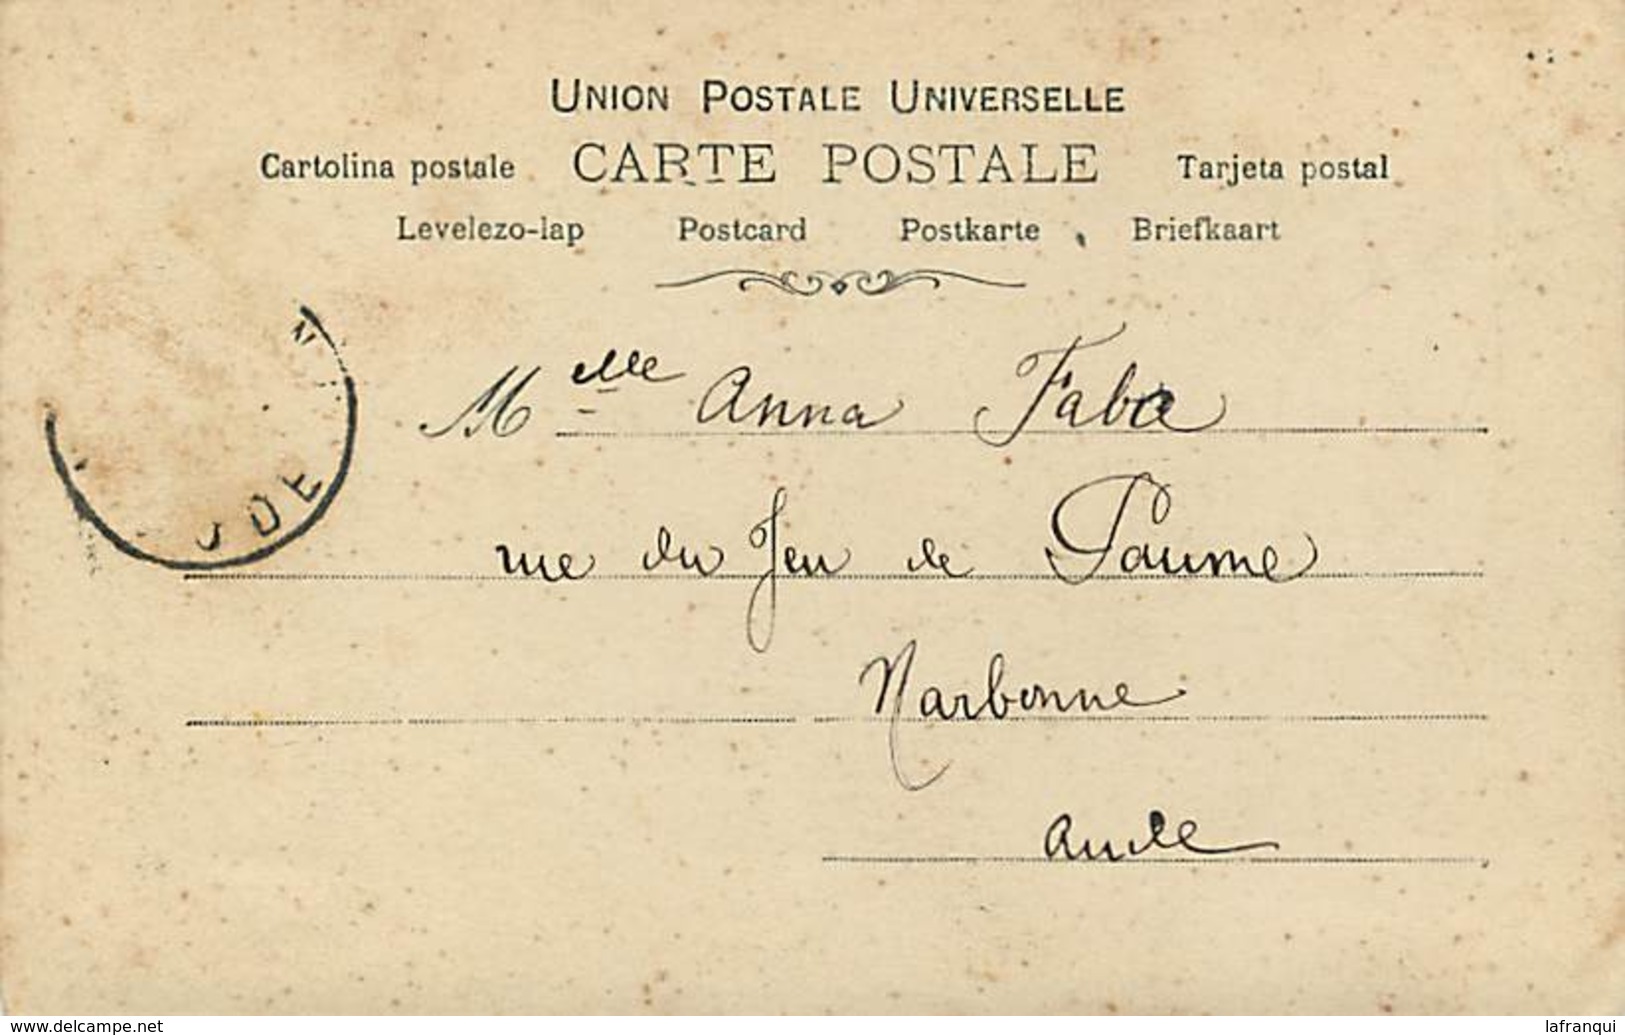 UNION POSTALE UNIVERSELLE
Cartolina postale CARTE POSTALE Tarjeta postal
Levelezo-lap Postcard Postkarte Briefkaart
Melle Anna Fabre
rue du Jeu de Paume
Narbonne
Aude
UDE
www.delcampe.net
lafranqui